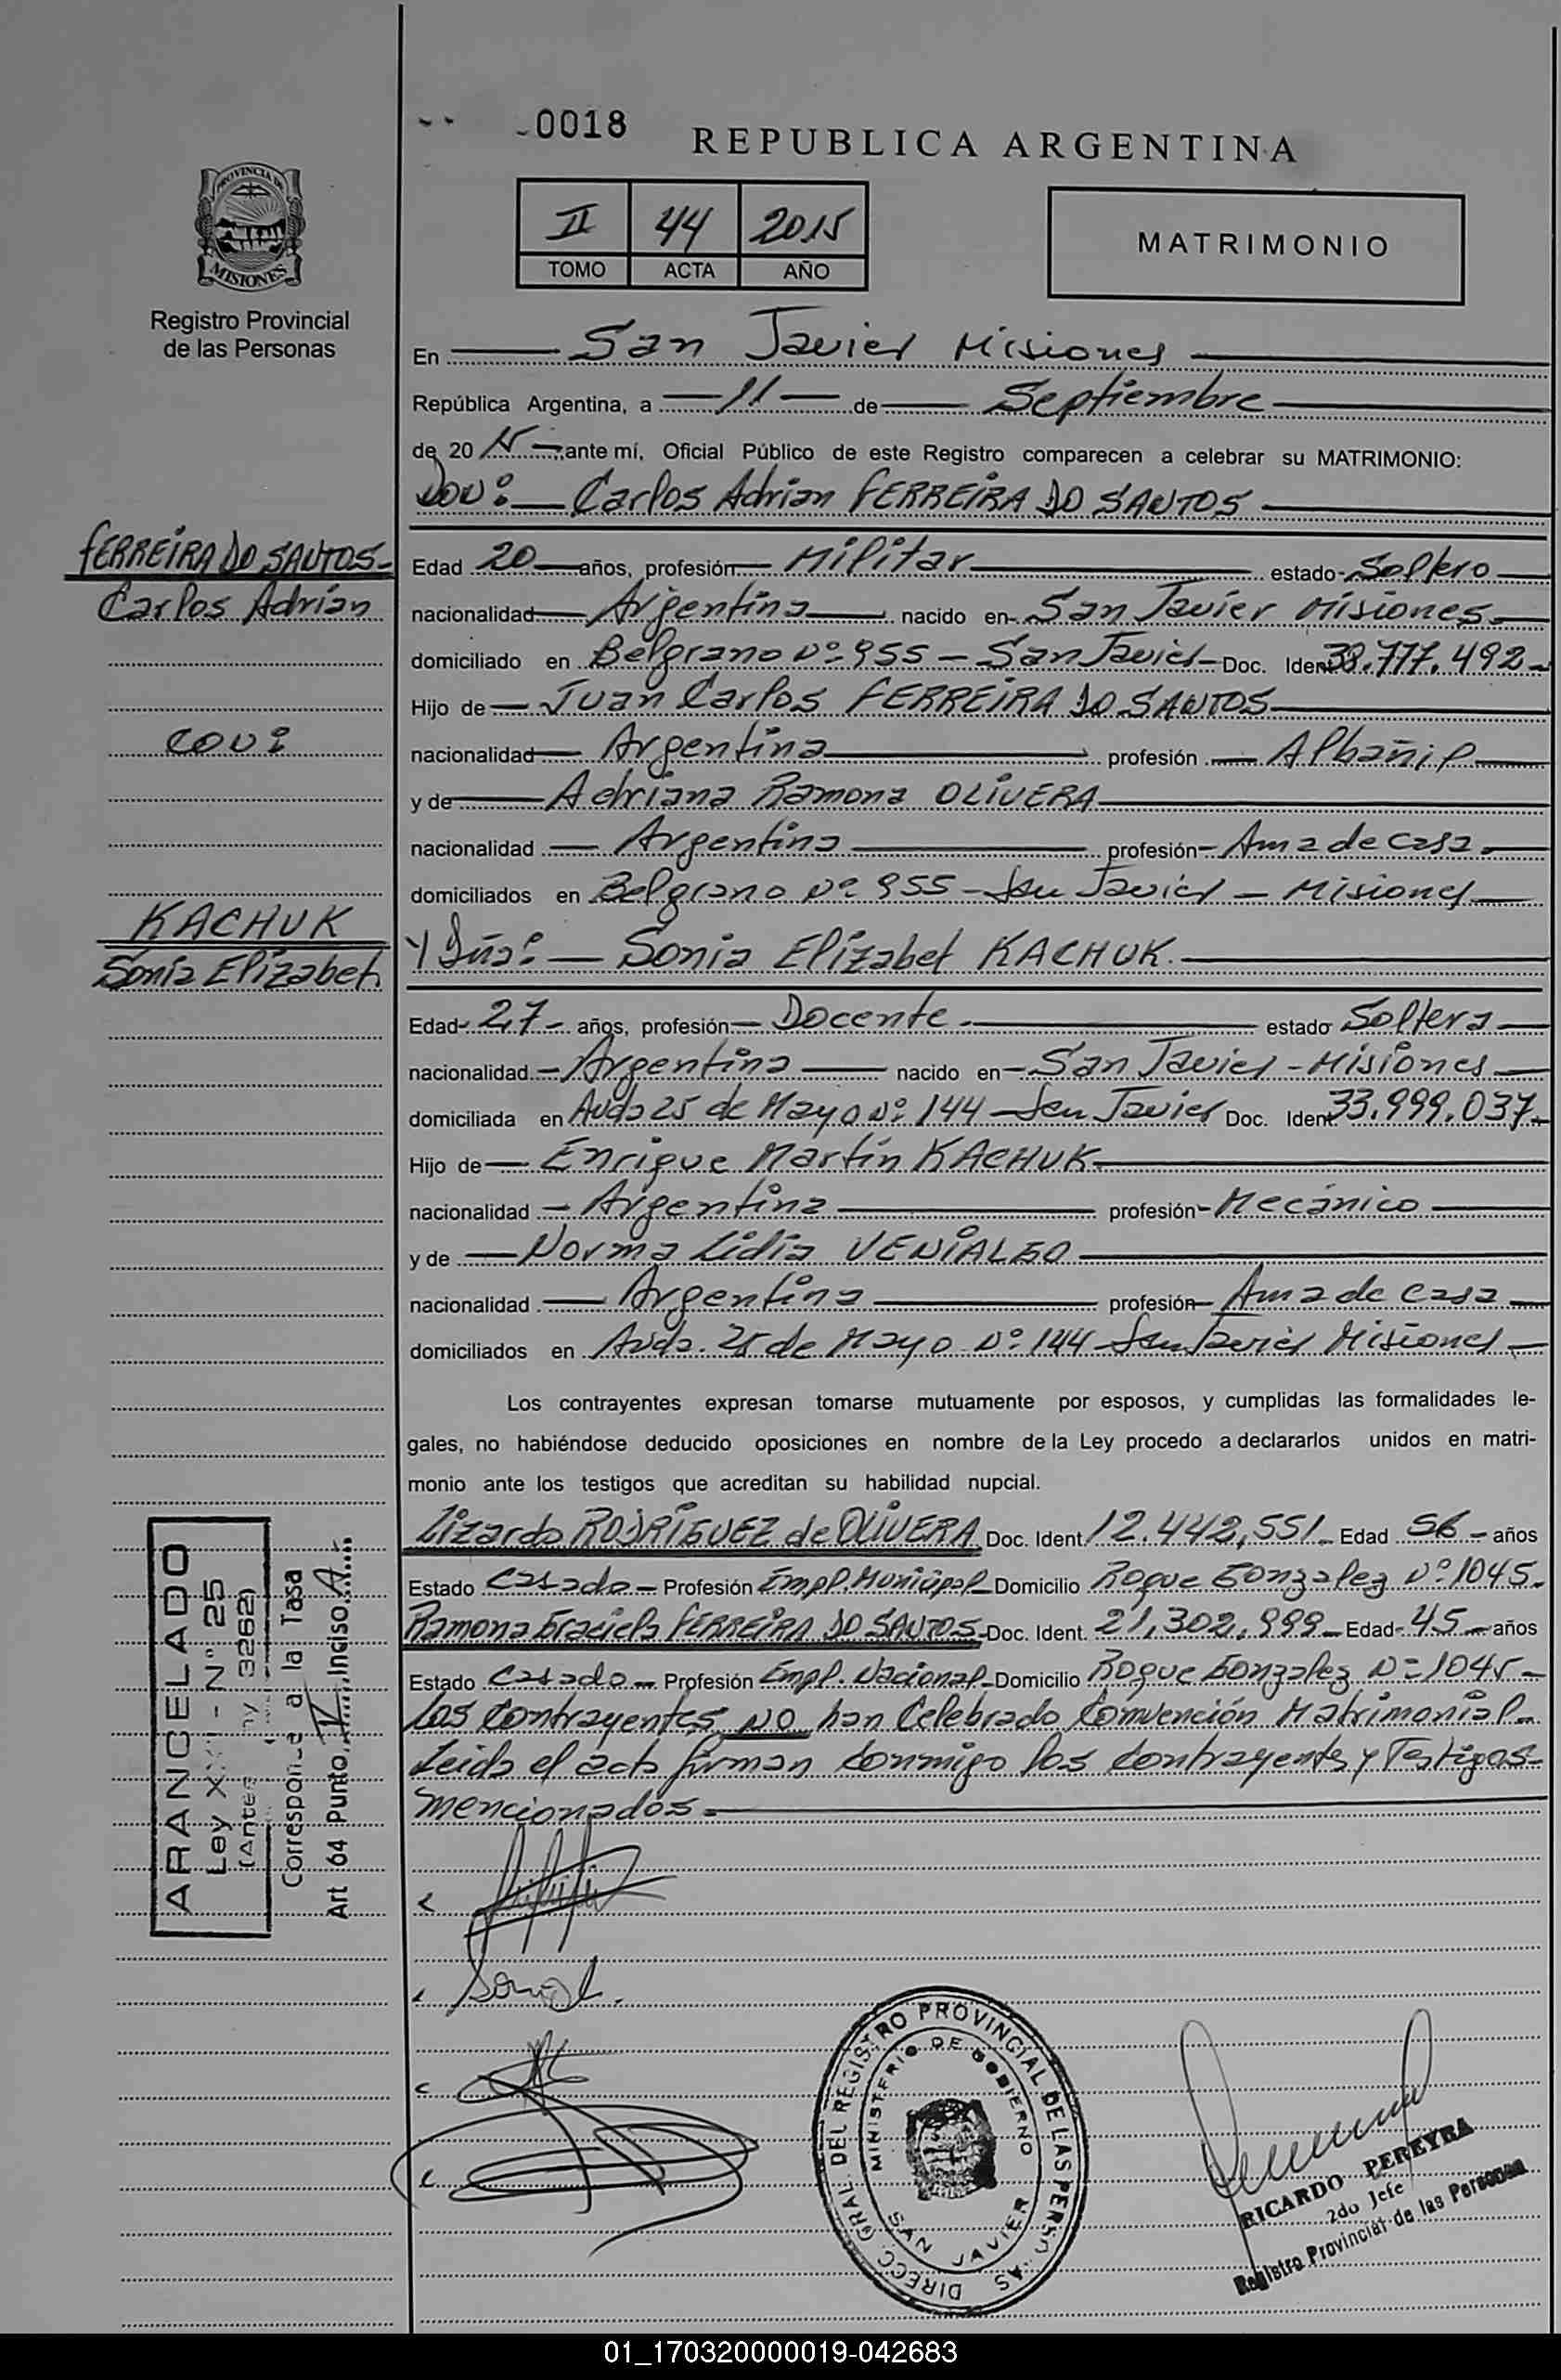 0018
REPUBLICA ARGENTINA
PROVINCIA DE
MISIONES
Registro Provincial
de las Personas
II 44 2015
TOMO ACTA AÑO
MATRIMONIO
En San Javier Misiones
República Argentina, a 11 de Septiembre
de 20 15 ante mí, Oficial Público de este Registro comparecen a celebrar su MATRIMONIO:
Don: Carlos Adrian FERREIRA DO SANTOS
FERREIRA DO SANTOS
Carlos Adrián
con:
KACHUK
Sonia Elizabet
Edad 20 años, profesión Militar estado Soltero
nacionalidad Argentina nacido en San Javier Misiones
domiciliado en Belgrano Nº 955 - San Javier - Doc. Ident. 38.777.492
Hijo de Juan Carlos FERREIRA DO SANTOS
nacionalidad Argentina profesión Albañil
y de Adriana Ramona OLIVERA
nacionalidad Argentina profesión Ama de casa
domiciliados en Belgrano Nº 955 - San Javier - Misiones
Y Dña: Sonia Elizabet KACHUK
Edad 27 años, profesión Docente estado Soltera
nacionalidad Argentina nacido en San Javier - Misiones
domiciliada en Avda 25 de Mayo Nº 144 - San Javier Doc. Ident. 33.999.037
Hijo de Enrique Martín KACHUK
nacionalidad Argentina profesión Mecánico
y de Norma Lidia VENIALGO
nacionalidad Argentina profesión Ama de casa
domiciliados en Avda. 25 de Mayo Nº 144 San Javier Misiones
Los contrayentes expresan tomarse mutuamente por esposos, y cumplidas las formalidades le-
gales, no habiéndose deducido oposiciones en nombre de la Ley procedo a declararlos unidos en matri-
monio ante los testigos que acreditan su habilidad nupcial.
Lizardo RODRIGUEZ de OLIVERA Doc. Ident 12.442.551 Edad 56 años
Estado Casado Profesión Empl. Municipal Domicilio Roque Gonzalez Nº 1045
Ramona Graciela FERREIRA DO SANTOS Doc. Ident. 21.302.999 Edad 45 años
Estado Casado Profesión Empl. Nacional Domicilio Roque Gonzalez Nº 1045
Los Contrayentes NO han Celebrado Convención Matrimonial
Leida el acta firman conmigo los contrayentes y Testigos
mencionados
ARANCELADO
Ley - Nº 25
3262)
Corresponde a la Tasa
Art 64 Punto IV Inciso A
DIRECC. GRAL. DEL REGISTRO PROVINCIAL DE LAS PERSONAS
MINISTERIO DE GOBIERNO
SAN JAVIER
RICARDO PEREYRA
2do Jefe
Registro Provincial de las Personas
01_170320000019-042683